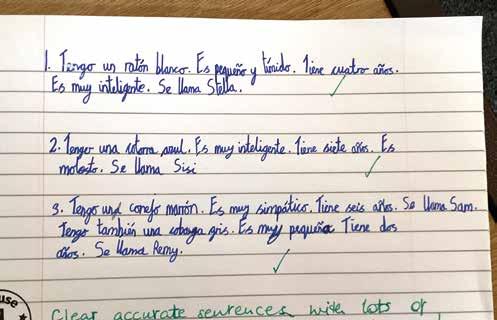 1. Tengo un ratón blanco. Es pequeño y tímido. Tiene cuatro años.
Es muy inteligente. Se llama Stella.
2. Tenger una cotorra azul. Es muy inteligente. Tiene siete años. Es
molesto. Se llama Sisi
3. Tengo una conejo marrón. Es muy simpático. Tiene seis años. Se llama Sam.
Tengo también una cobaya gris. Es muy pequeña Tiene dos
años. Se llama Remy.
Clear accurate sentences with lots of
use